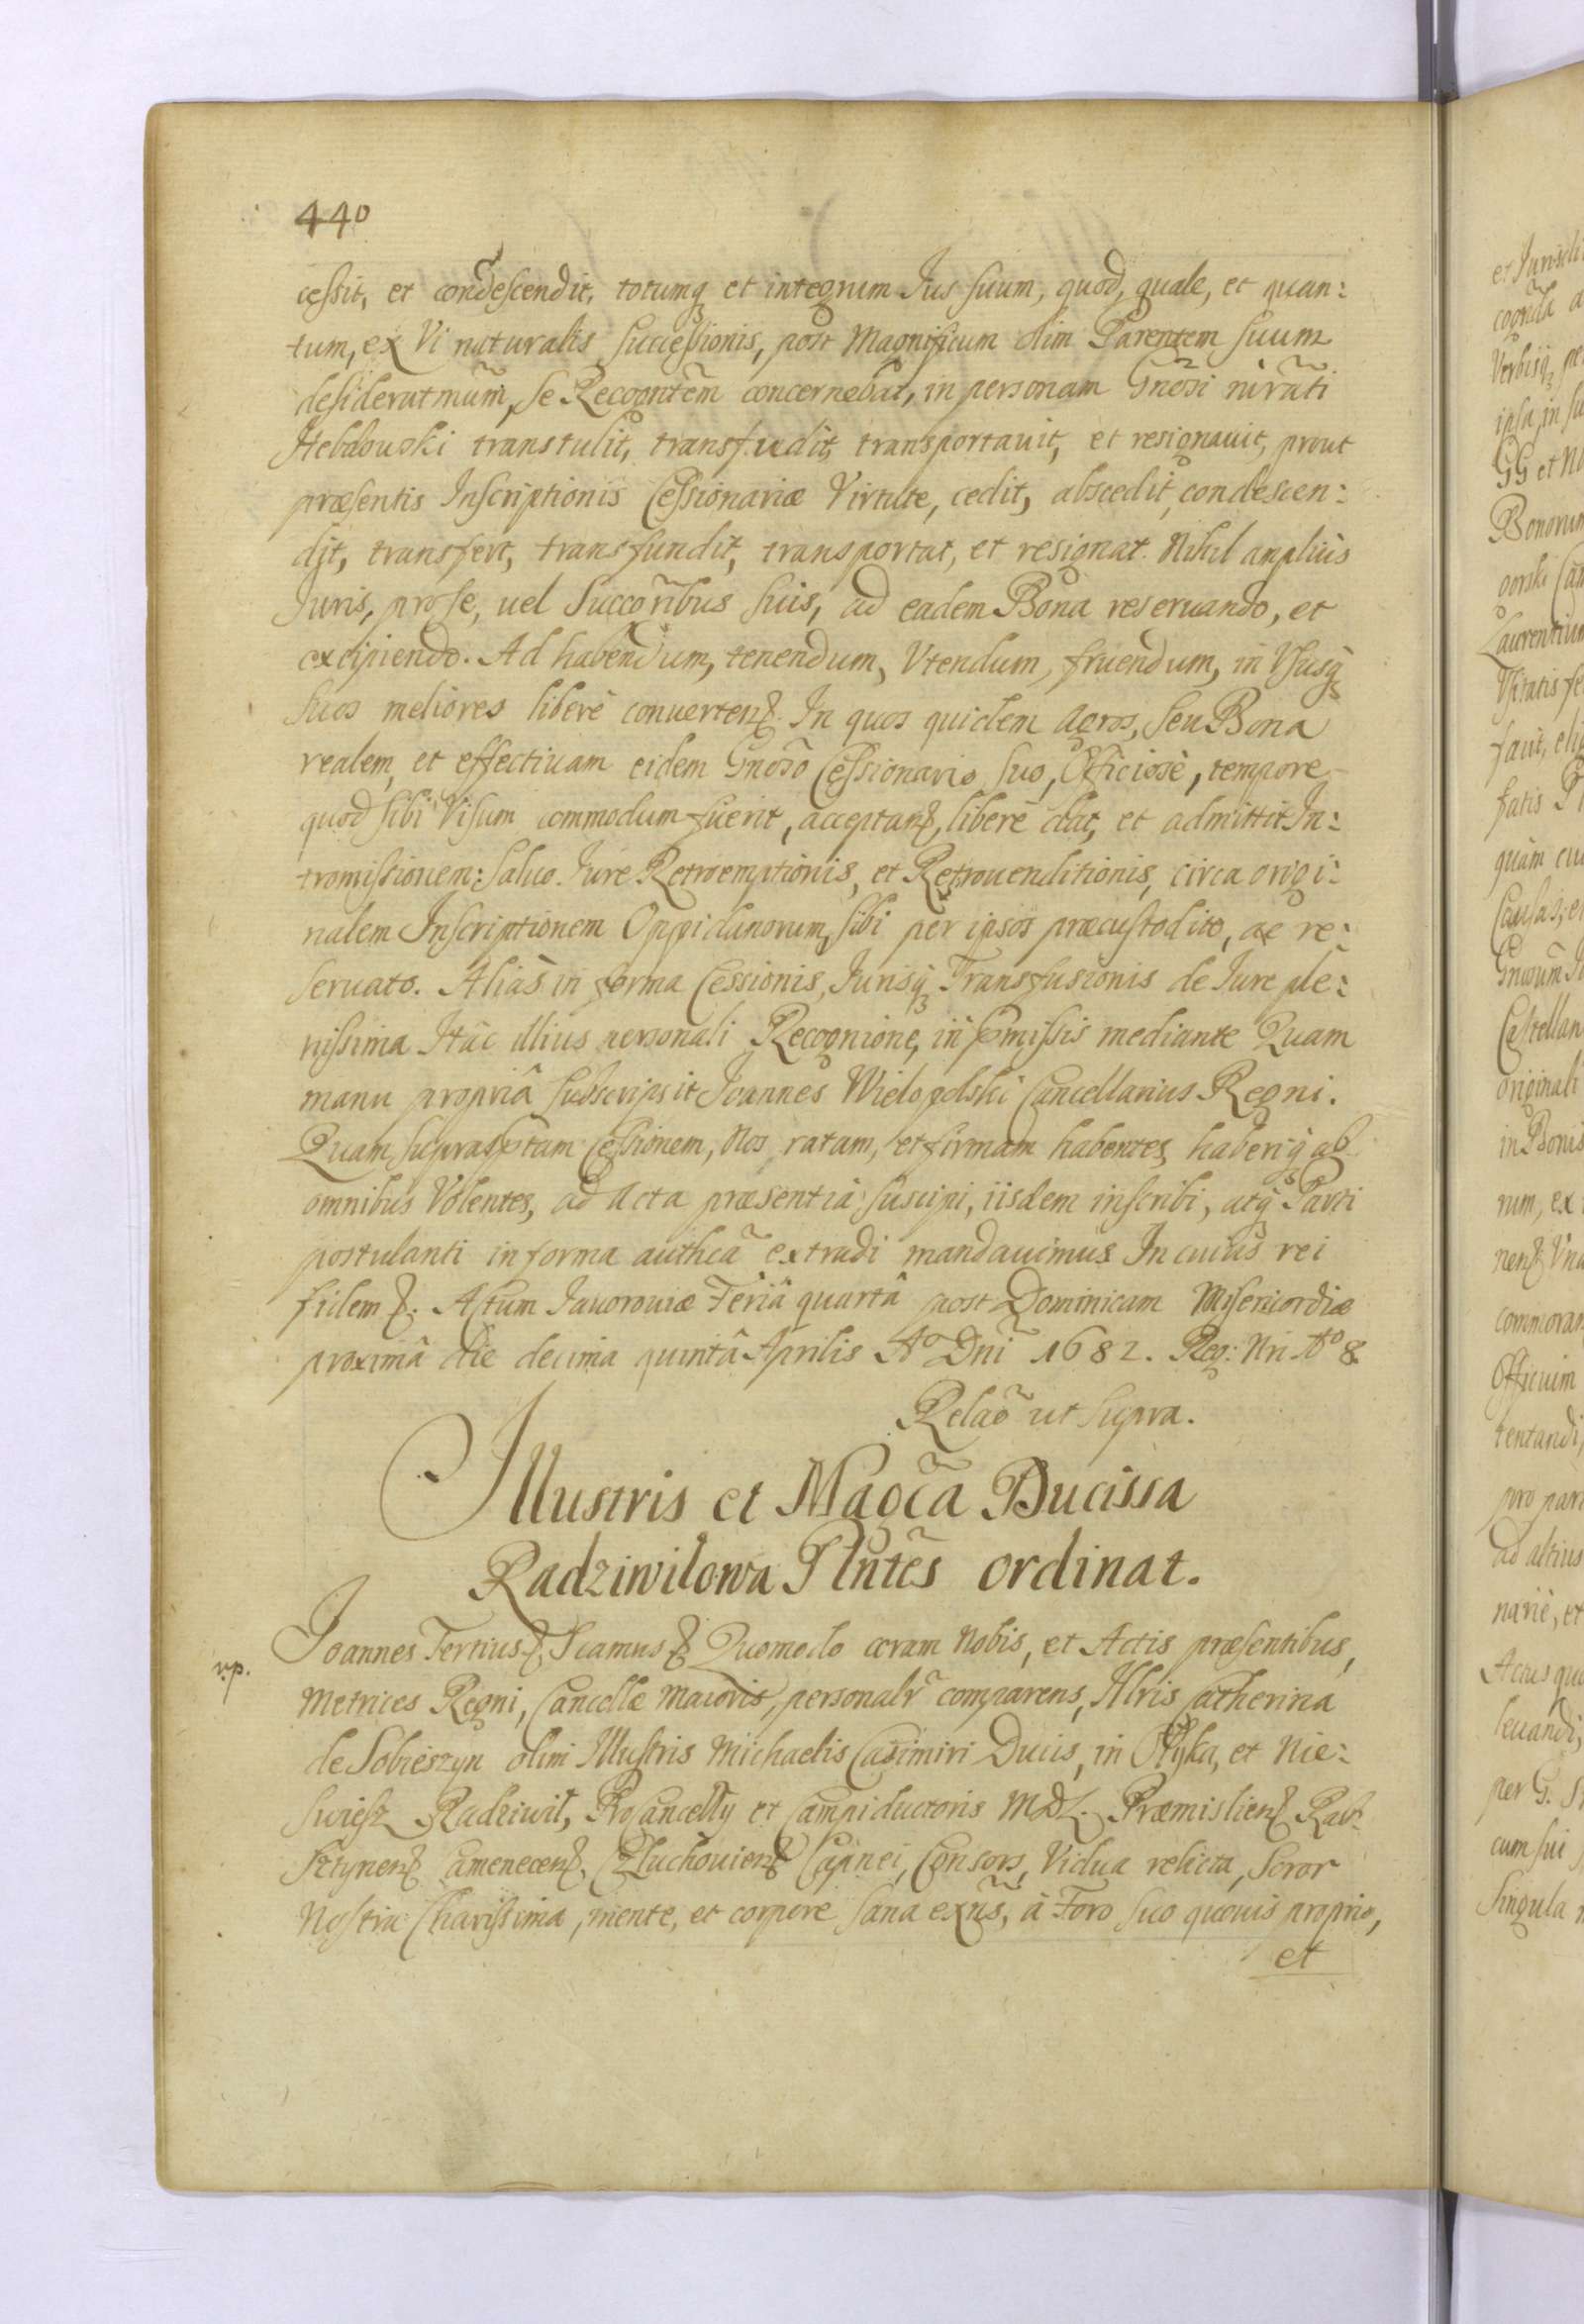 440
cessit, et condescendit, totumq et integrum Ius suum, quod, quale, et quan:
tum, ex Vi naturalis successionis, post Magnificum olim Parentem suum
desideratmum, se Recogntem concernebat, in personam Gnosi
Hebdowski transtulit, transfudit, transportavit, et resignavit, prout
præsentis Inscriptionis Cessionariæ Virtute, cedit, abscedit, condescen:
dit, transfert, transfundit, transportat, et resignat. Nihil ampliùs
Iuris, pro se, vel Succoribus suis, ad eadem Bona reservando, et
excipiendo. Ad habendum, tenendum, Vtendum, fruendum, in Vsusq
suos meliores liberè converten. In quos quidem Agros, seu Bona
realem, et effectivam eidem Gnoso Cessionario suo, Officiosè, tempore
quod sibi Visum commodum fuerit, acceptan, liberè dat, et admittit In:
tromissionem: Salvo Iure Retroemptionis, et Retrovenditionis, circa origi:
nalem Inscriptionem Oppidanorum, sibi per ipsos præcustodito, ac re:
servato. Aliàs in forma Cessionis, Iurisq Transfusionis de Iure ple:
nissima Hâc illius personali Recognione, in pmissis mediante Quam
manu propriâ subscripsit Joannes Wielopolski Cancellarius Regni.
Quam suprascptam Cessionem, Nos ratam, et firmam habentes, haberiq ab
omnibus Volentes, ad Acta præsentia suscipi, iisdem inscribi, atq Parti
postulanti in forma authca extradi mandavimus In cuius rei
fidem &. Actum Javoroviæ Feriâ quartâ post Dominicam Misericordiæ
proximâ die decima quintâ Aprilis Aº Dni 1682. Reg: Nri Aº 8.
Relao ut supra.
Illustris et Magca Ducissa
Radziwilowa Plntes ordinat.
Joannes Tertius &. Scamus & Quomodo coram Nobis, et Actis præsentibus,
Metrices Regni, Cancellæ Maioris, personalr comparens, Illris Catherina
de Sobieszyn olim Illustris Michaelis Casimiri Ducis, in Ołyka, et Nie:
swiesz Radziwił, ProCancelly et Campiductoris MDL. Præmislien
Camenecen, Człuchovien Capnei, Consors, Vidua relicta, Soror
Nostra Charissima, mente, et corpore sana exns, à Foro suo quovis proprio,
et